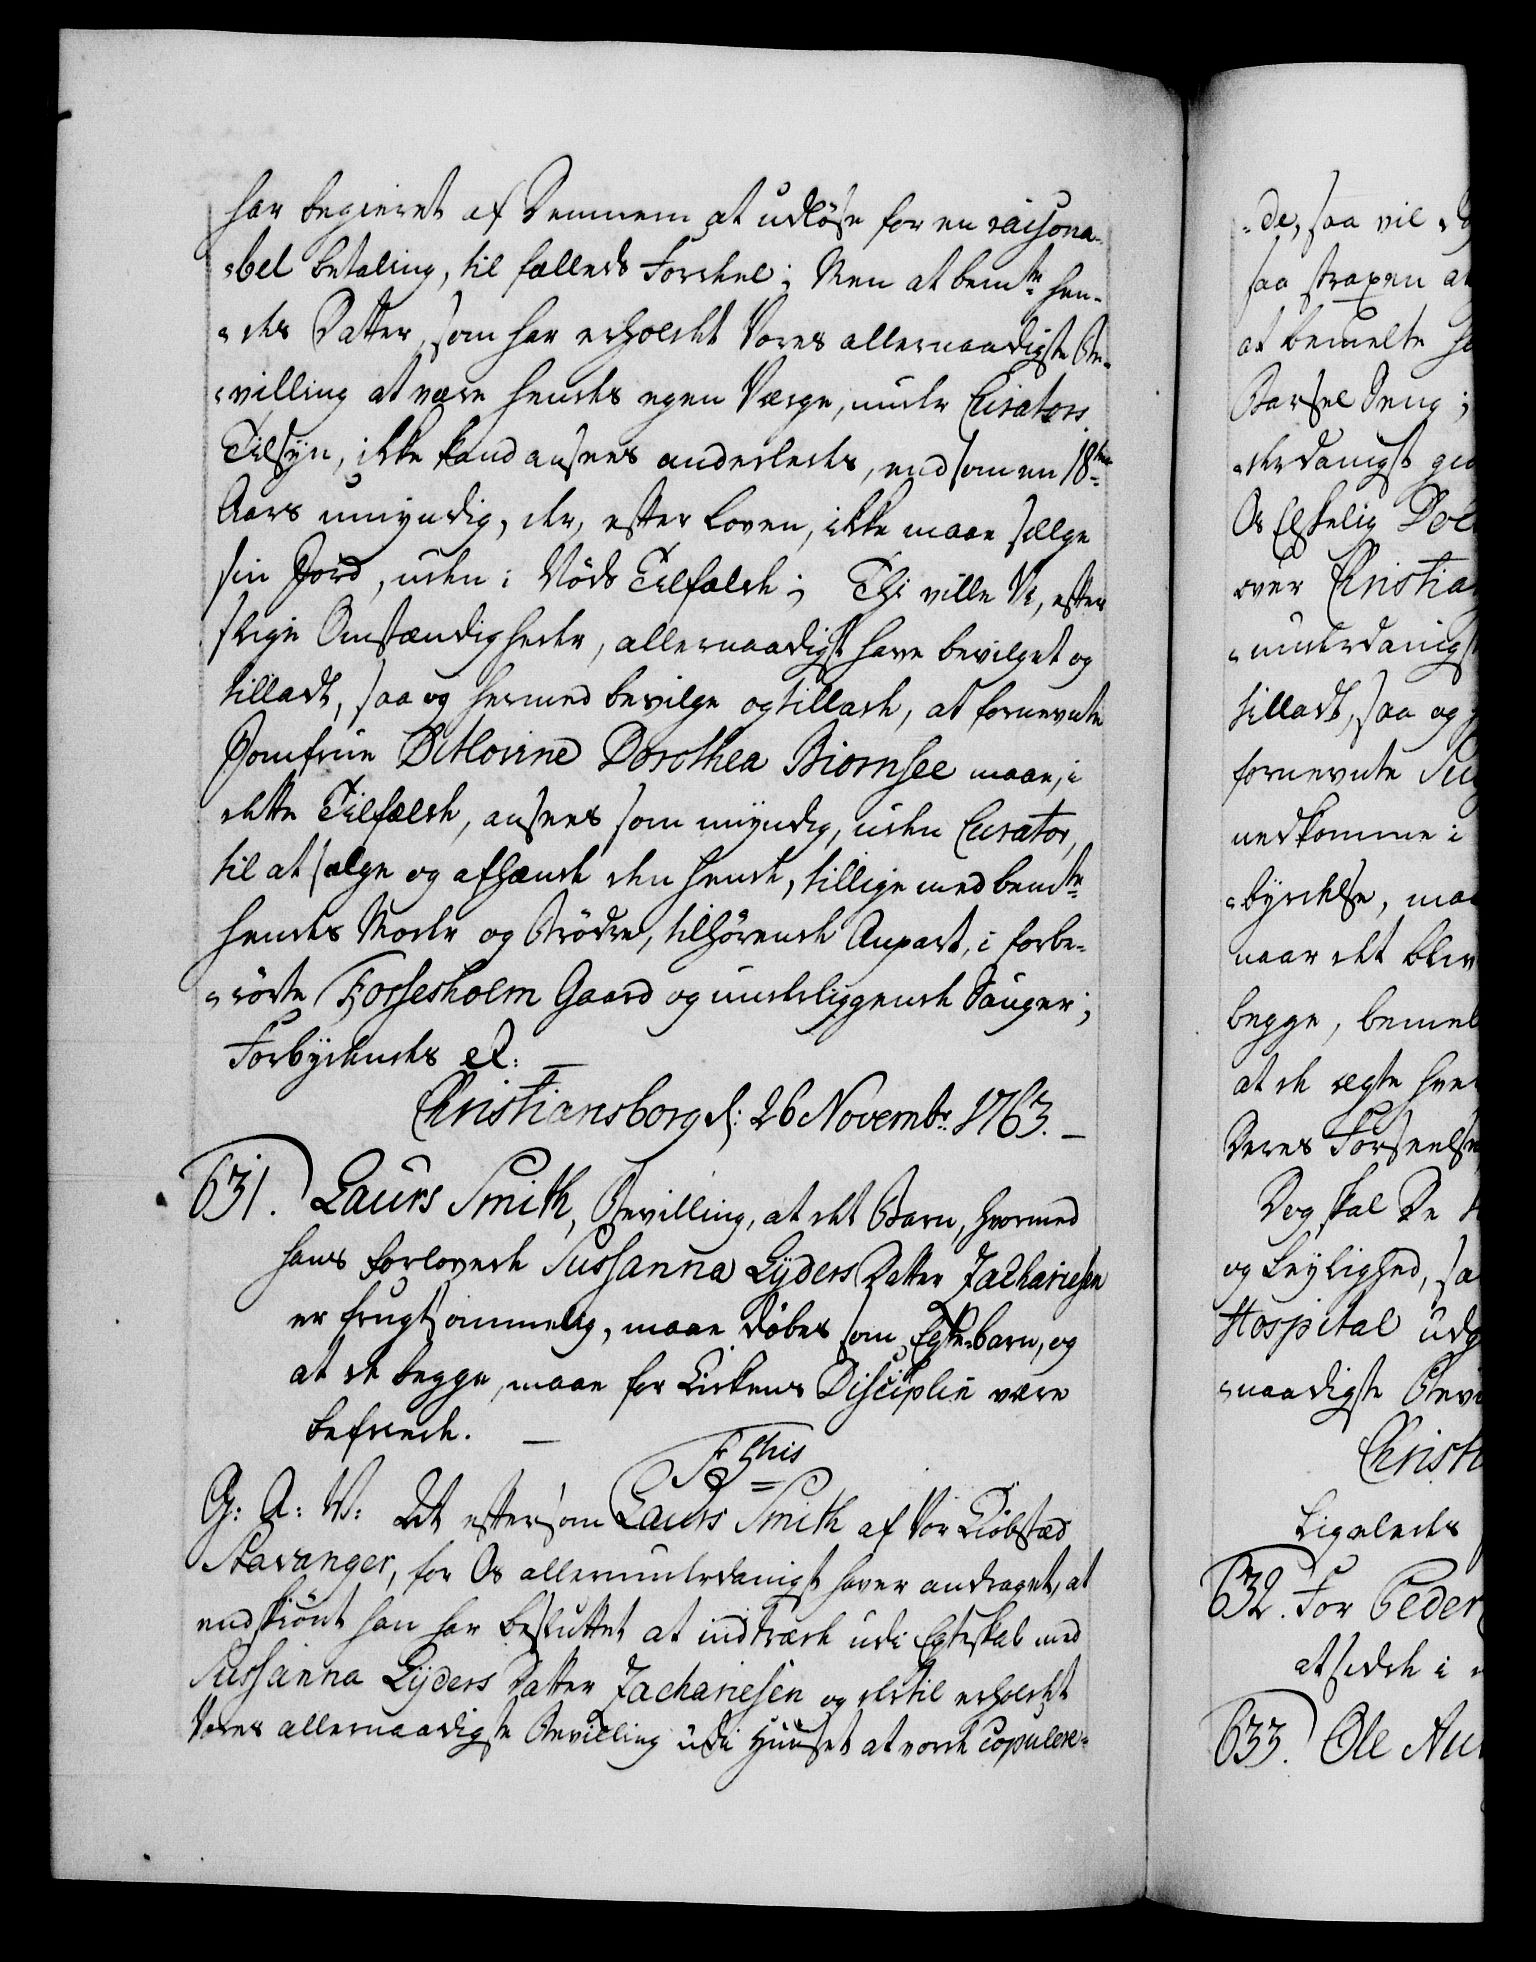 har begieret af Dennem at udløse for en raisona-
-bel betaling, til fælleds Fordeel; Men at bemte hen-
-des Datter, som har erholdet Vores allernaadigste Be-
-villing at være hendes egen Værge, under Curators
Tilsyn, ikke kand ansees anderledes, end som en 18ten
Aars umyndig, der, efter Loven, ikke maae sælge
sin Jord, uden i Nøds Tilfælde; Thi ville Vi, efter
slige Omstændigheder, allernaadigst have bevilget og
tilladt, saa og hermed bevilge og tillade, at fornevnte
Jomfrue Ditlovine Dorothea Biornsee maae, i
dette Tilfælde, ansees som myndig, uden Curator,
til at sælge og afhænde den hende, tillige med bemte
hendes Moder og Brødre, tilhørende Anpart, i forbe-
-rørte Fossesholm Gaard og underliggende Sauger;
Forbydendes etc: —
Christiansborg d: 26 Novembr: 1763. —
631. Laurs Smith, Bevilling, at det Barn, hvormed
hans forlovede Sussanna Lyders Datter Zachariesen
er frugtsommelig, maae døbes som Egte-barn, og
at de begge, maae for Kirkens Disciplin være
befriede. —
F 5this
G: A: V: At eftersom Laurs Smith af Vor Kiøbstæd
Stavanger, for Os allerunderdanigst haver andraget, at
endskiønt han har besluttet at indtræde udi Egteskab med
Sussanna Lyders Datter Zachariesen og dertil erholdet
Vores allernaadigste Bevilling udi Huuset at vorde copulere-
-de, saa vil
saa straxen at
at bemelte
Barsel Seng;
-derdanigst
Os Elskelig
over Christian
-underdanigst
tilladt, saa og
fornevnte
nedkomme i
-byrdelse, maa
naar det bliv
begge, bemel
at de egte
Deres Forseelse
Dog skal De
og Leylighed, sa
Hospital udg
-naadigste Bevi
Christi
Ligeledes
632. For Peder
at sidde i
633. Ole